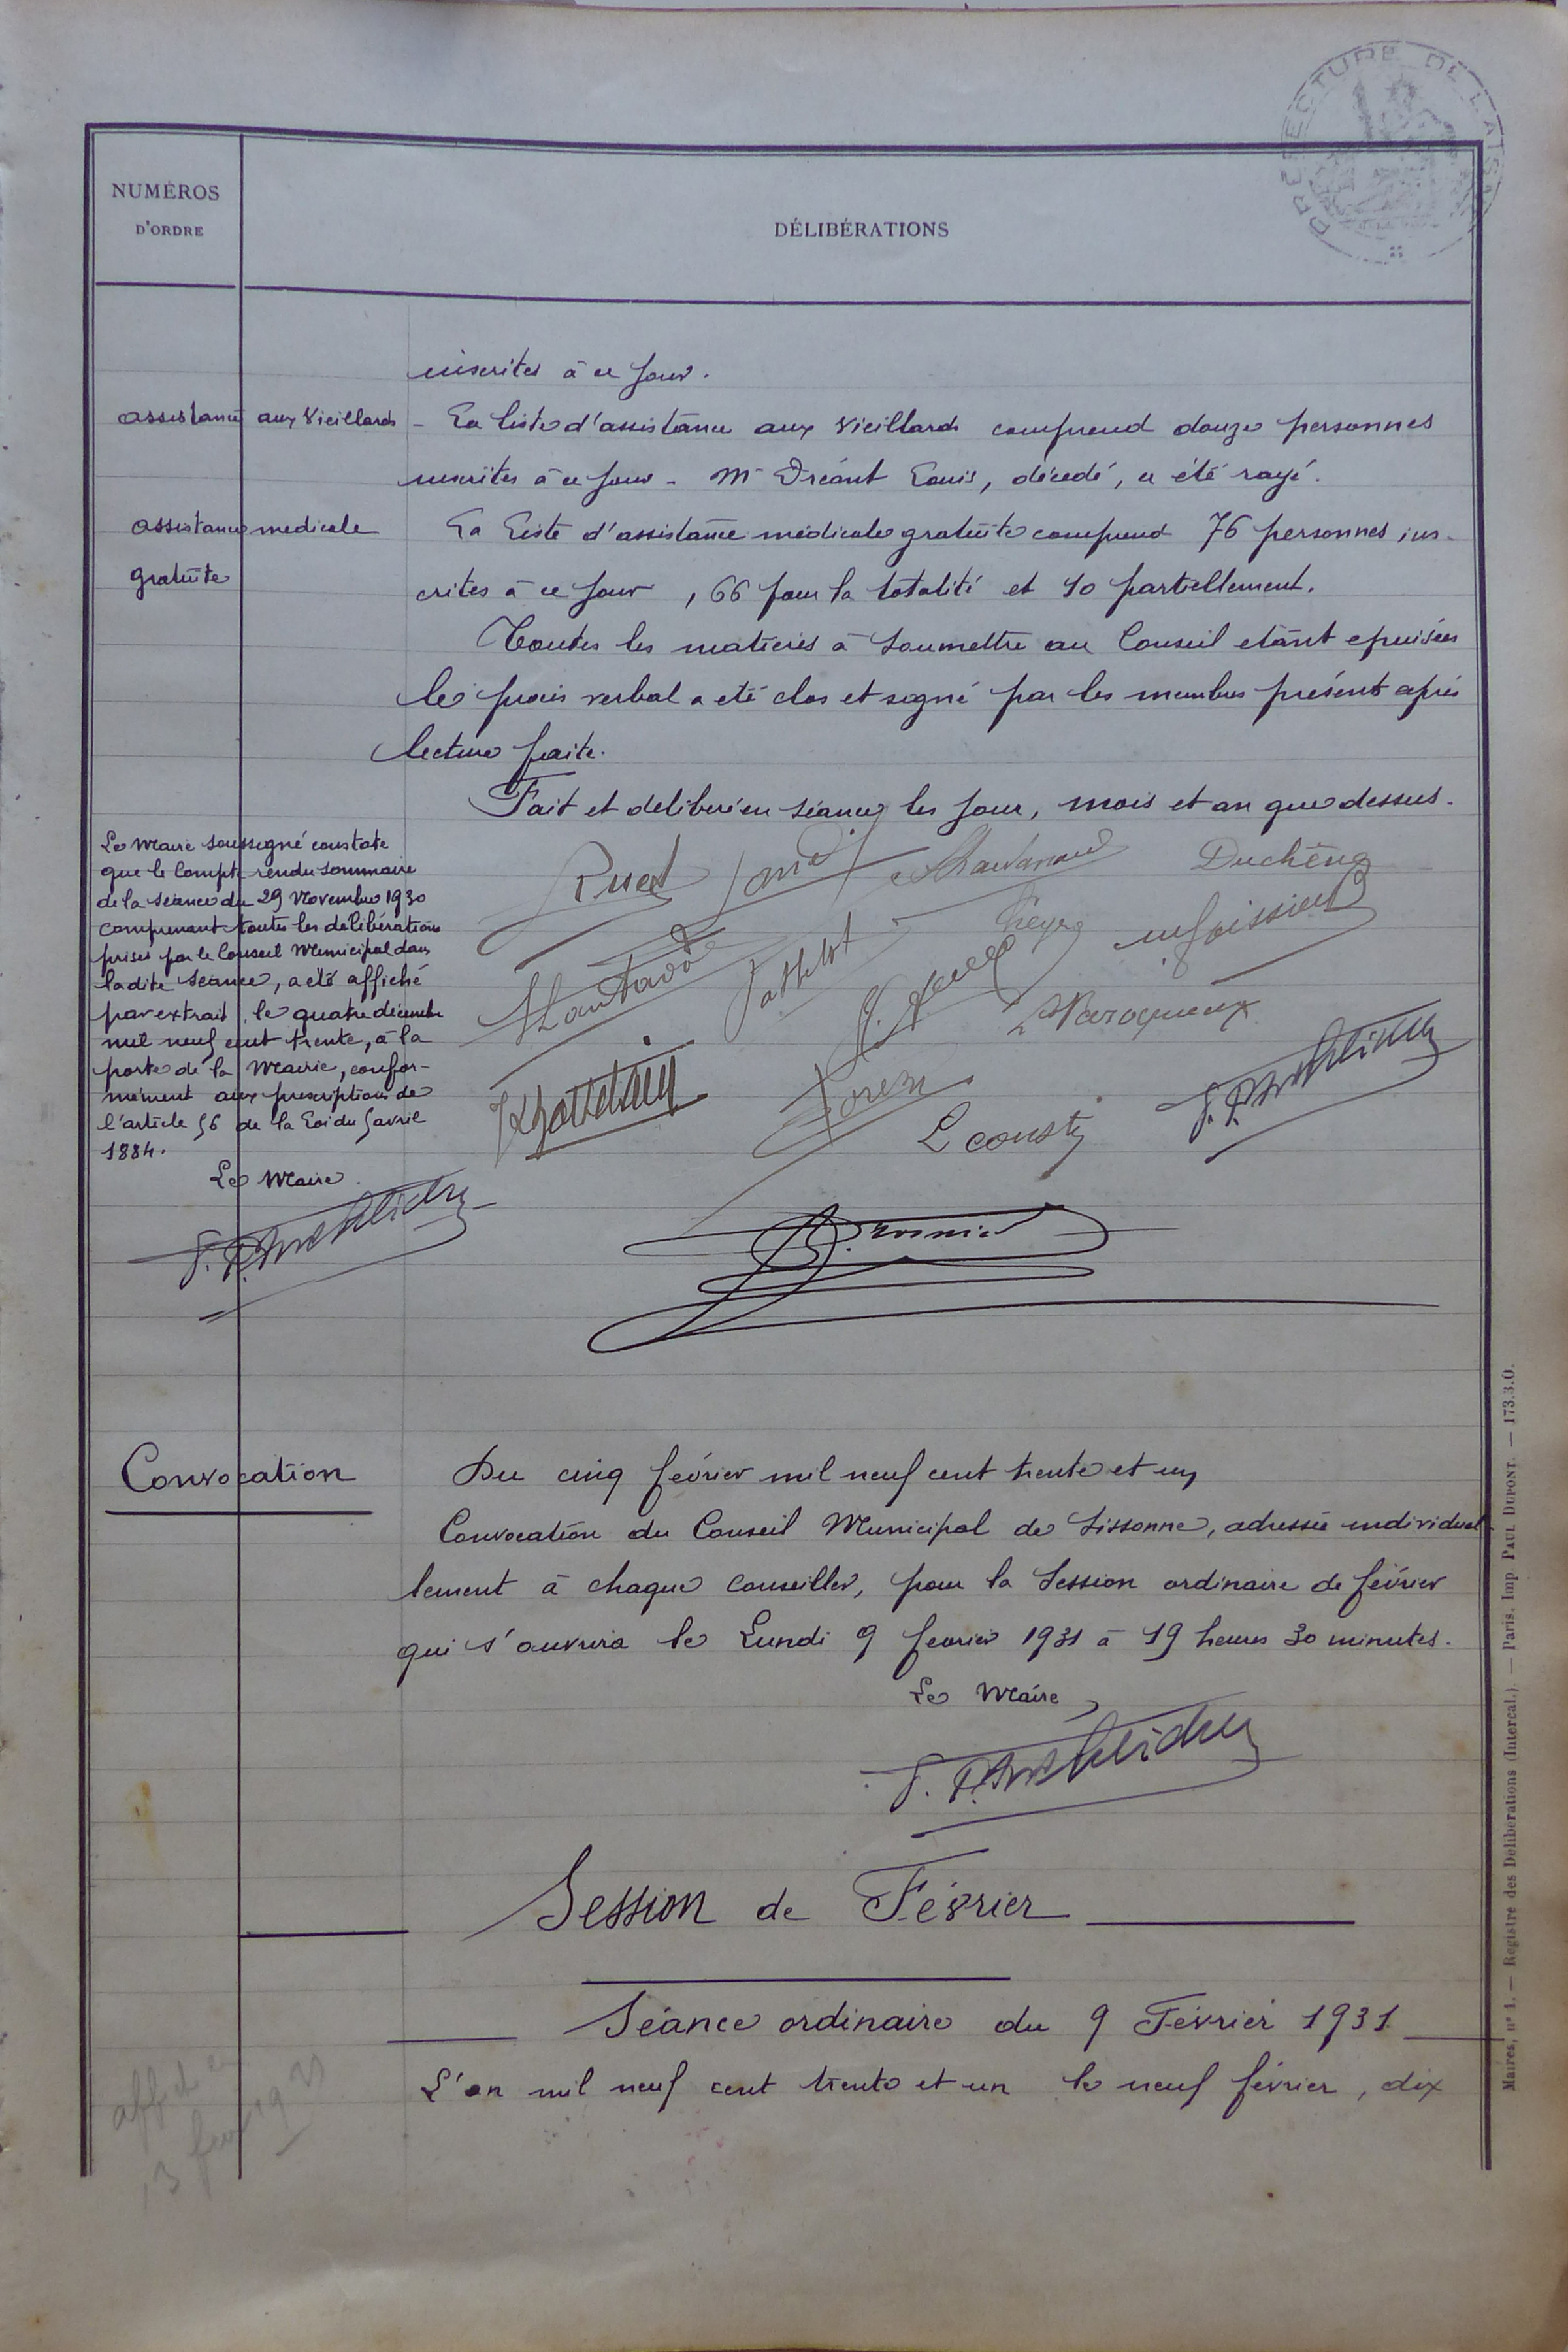 PRÉFECTURE DE L'AISNE
NUMÉROS
D'ORDRE
DÉLIBÉRATIONS
inscrites à ce jour.
assistance aux Vieillards
- La liste d'assistance aux Vieillards comprend douze personnes
inscrites à ce jour - Mr Dréant Louis, décédé, a été rayé.
assistance medicale
gratuite
La liste d'assistance médicale gratuite comprend 76 personnes ins-
crites à ce jour, 66 pour la totalité et 10 partiellement.
Toutes les matières à soumettre au Conseil etant epuisées
le procès verbal a eté clos et signé par les membres présent après
lecture faite.
Fait et deliberé en séance les jour, mois et an que dessus.
Le Maire soussigné constate
que le Compte rendu sommaire
de la séance du 29 Novembre 1930
comprenant toutes les délibérations
prises par le Conseil Municipal dans
ladite séance, a été affiché
par extrait, le quatre décembre
mil neuf cent trente, à la
porte de la Mairie, confor-
mément aux prescriptions de
l'article 56 de la Loi du 5 avril
1884.
Le Maire.
Duchêne
L cousty
Convocation
Du cinq février mil neuf cent trente et un
Convocation du Conseil Municipal de Sissonne, adressée individuel
lement à chaque Conseiller, pour la Session ordinaire de février
qui s'ouvrira le Lundi 9 fevrier 1931 à 19 heures 30 minutes.
Le Maire,
Session de Février
Séance ordinaire du 9 Février 1931
L'an mil neuf cent trente et un le neuf février, dix
Maires, n° 1. — Registre des Délibérations (Intercal.). — Paris, Imp. PAUL DUPONT. — 173.3.O.